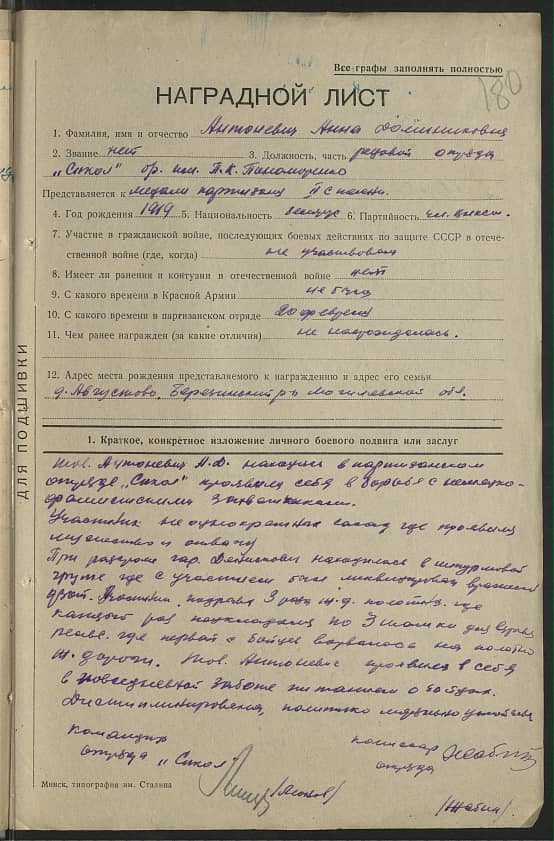 Все графы заполнять полностью
180
НАГРАДНОЙ ЛИСТ
1. Фамилия, имя и отчество Антоневич Анна Доминиковна
2. Звание нет 3. Должность, часть рядовой отряда
"Сокол" бр. им. П.К. Пономаренко
Представляется к медали партизана II степени
4. Год рождения 1919 5. Национальность белорус 6. Партийность чл.
7. Участие в гражданской войне, последующих боевых действиях по защите СССР в отече-
ственной войне (где, когда) не участвовал
8. Имеет ли ранения и контузии в отечественной войне нет
9. С какого времени в Красной Армии не была
10. С какого времени в партизанском отряде 20 февраля
11. Чем ранее награжден (за какие отличия) не награждалась.
12. Адрес места рождения представляемого к награждению и адрес его семьи
д. Августово, Березинский р-н Могилевской обл.
ДЛЯ ПОДШИВКИ
1. Краткое, конкретное изложение личного боевого подвига или заслуг
Тов. Антоневич А.Д. находясь в партизанском
отряде "Сокол" проявила себя в борьбе с немецко-
фашистскими захватчиками.
Участник неоднократных засад где проявила
мужество и отвагу
При разгроме гар. находилась в штурмовой
группе где с участием был ликвидирован вражеский
дзот. Участник подрыва 3 раза ж.д. полотна. где
каждый раз по 3 для взрыва
где первой с бойцев ворвалась на полотно
ж. дороги. Тов. Антоневич проявила себя
в повседневной заботе питанием о бойцах.
Дисциплинирована, политико морально устойчива
командир
отряда "Сокол"
комиссар
отряда
(Жабин)
Минск, типография им. Сталина